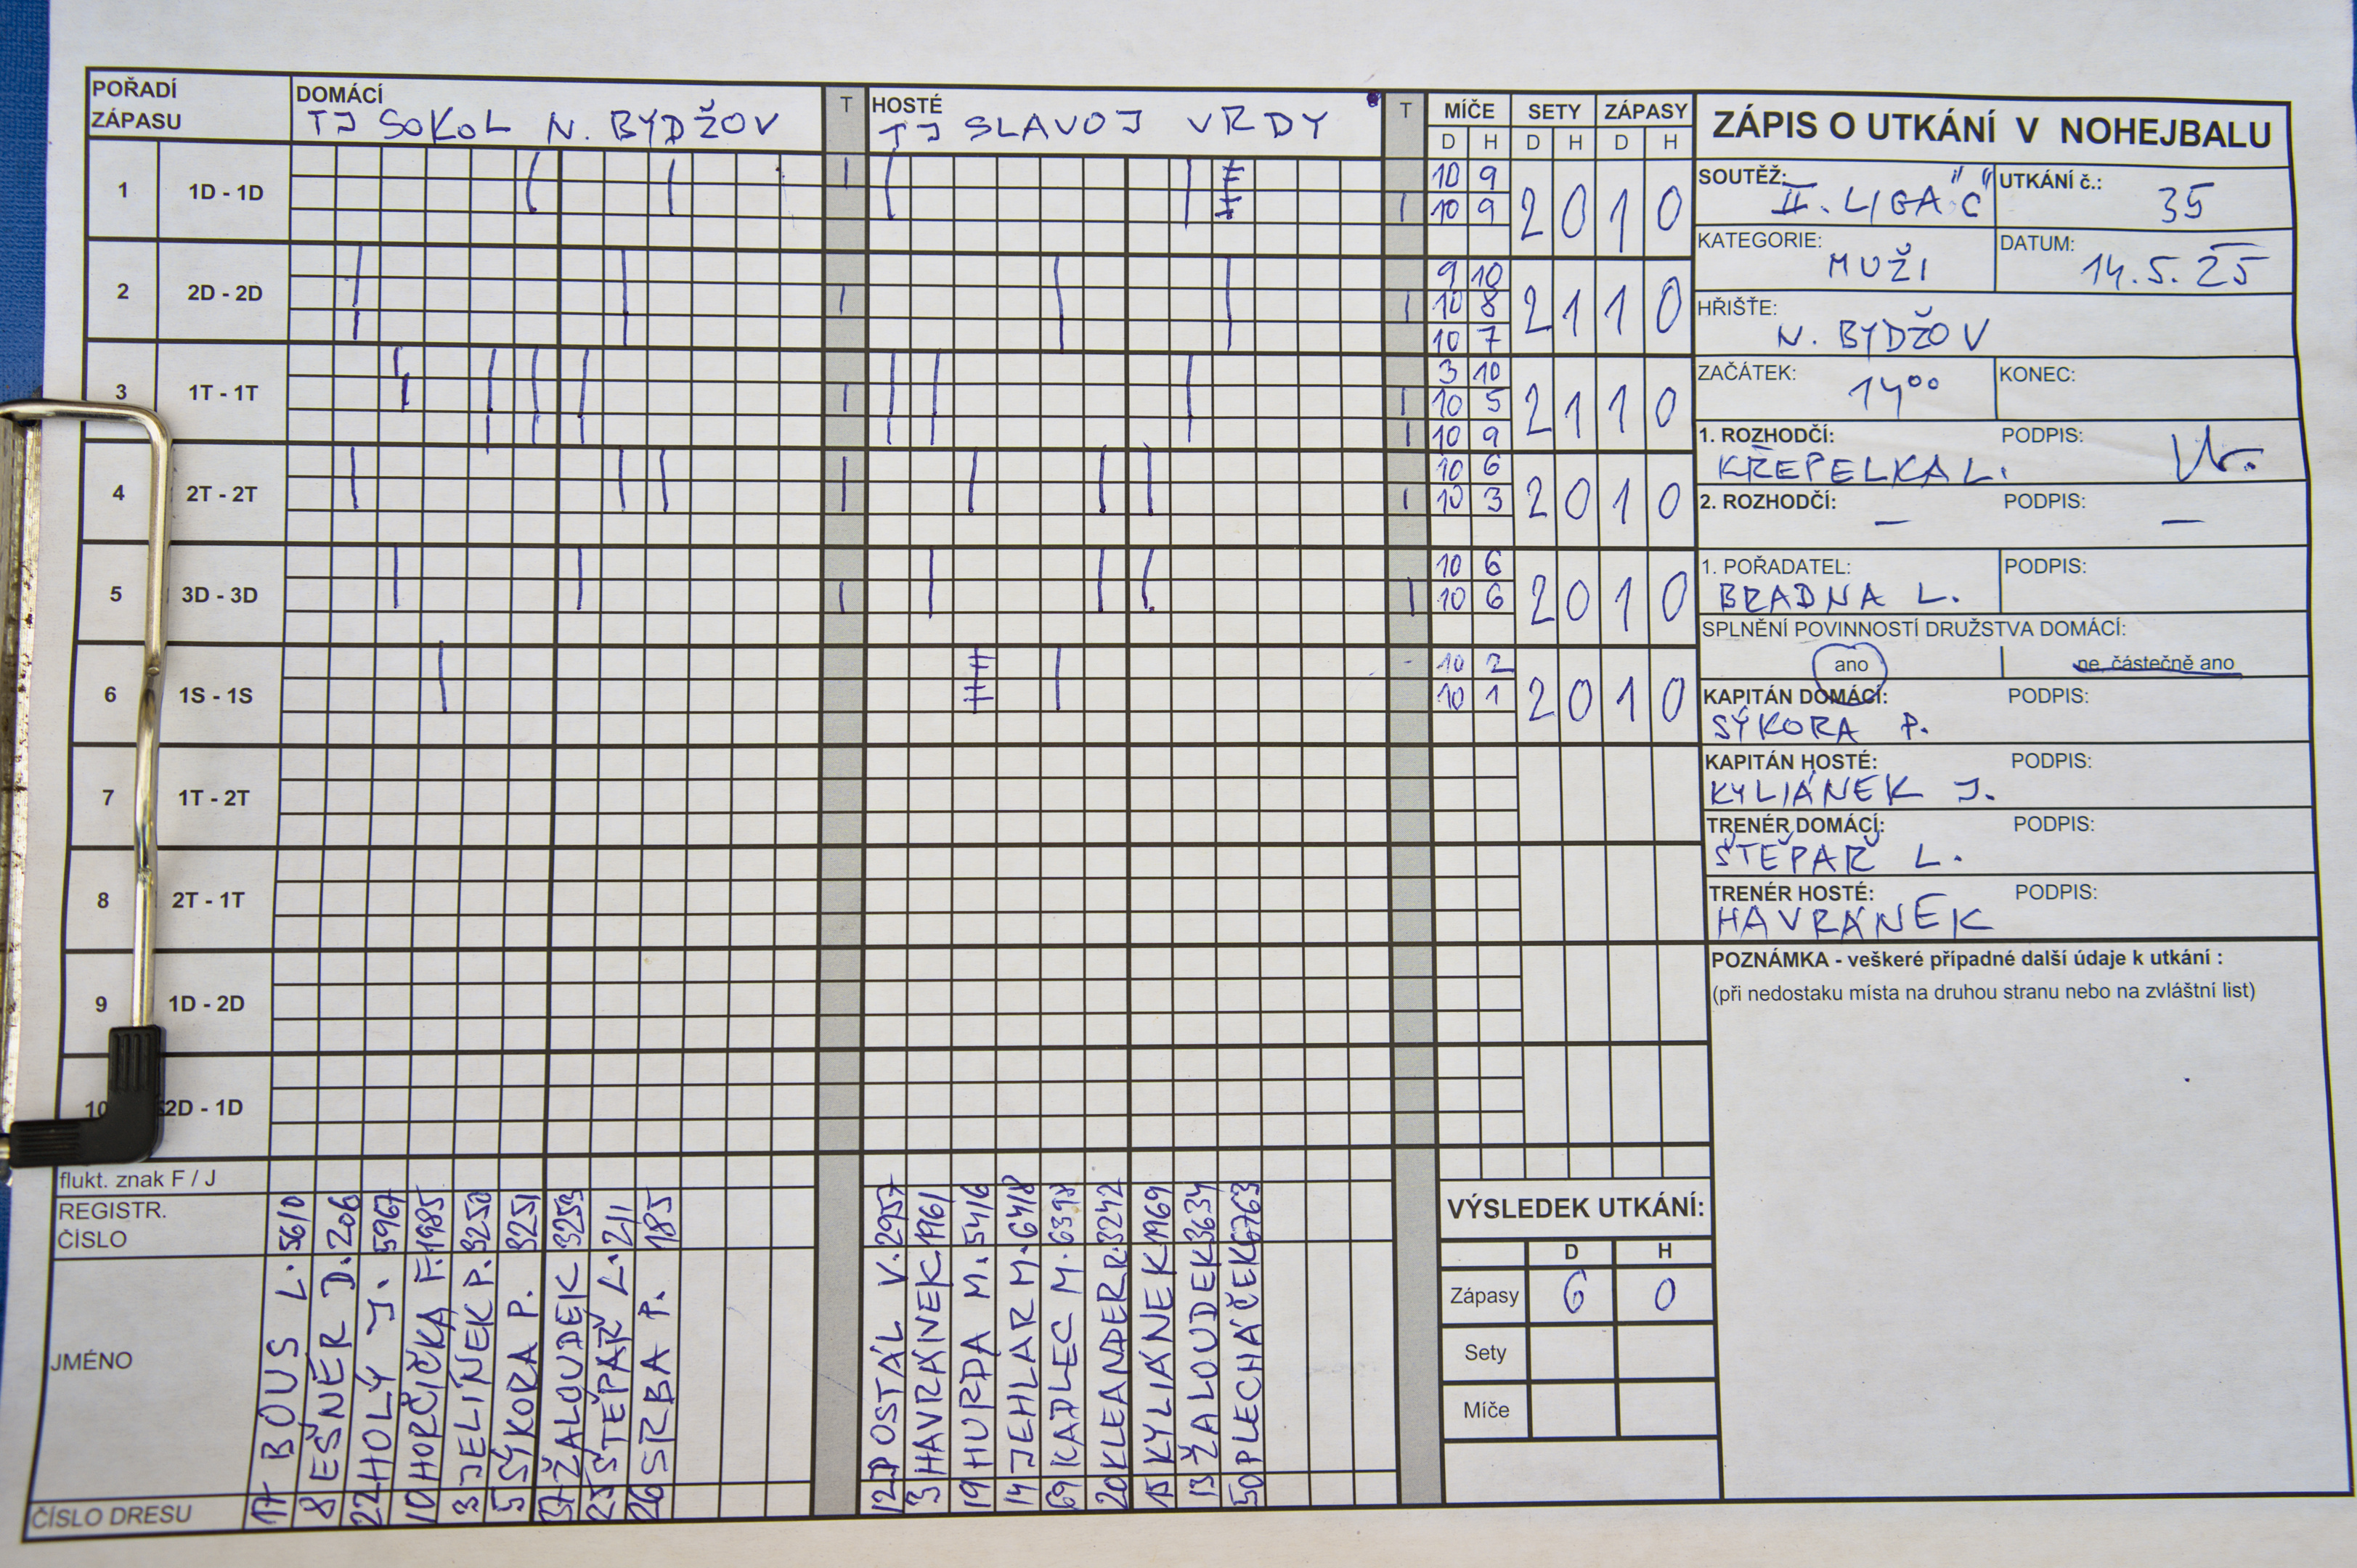 POŘADÍ ZÁPASU
DOMÁCÍ
TJ SOKOL N. BYDŽOV
T
HOSTÉ
TJ SLAVOJ VRDY
T
MÍČE SETY ZÁPASY
D H D H D H
1 1D - 1D
10 9
10 9
2 0 1 0
2 2D - 2D
9 10
10 8
10 7
2 1 1 0
3 1T - 1T
3 10
10 5
10 9
2 1 1 0
4 2T - 2T
10 6
10 3
2 0 1 0
5 3D - 3D
10 6
10 6
2 0 1 0
6 1S - 1S
10 2
10 1
2 0 1 0
7 1T - 2T
8 2T - 1T
9 1D - 2D
10 2D - 1D
flukt. znak F / J
REGISTR. ČÍSLO
5610 206 5967 1985 3250 3251 3253 211 185
2957 1961 5416 6418 3242 1969 3634 6763
JMÉNO
BOUS L.
EŠNER D.
HOLÝ J.
HORČIČKA F.
JELÍNEK P.
SÝKORA P.
ŽALOUDEK
ŠTĚPAŘ L.
SRBA P.
DOSTÁL V.
HAVRÁNEK
HURDA M.
JEHLAR M.
KADLEC M.
KLEANDER R.
KYLIÁNEK
ŽALOUDEK
PLECHÁČEK
ČÍSLO DRESU
17 8 22 10 3 5 37 23 26
12 3 19 14 69 20 15 13 50
ZÁPIS O UTKÁNÍ V NOHEJBALU
SOUTĚŽ: II. LIGA "C"
UTKÁNÍ č.: 35
KATEGORIE: MUŽI
DATUM: 14.5.25
HŘIŠTĚ: N. BYDŽOV
ZAČÁTEK: 14⁰⁰
KONEC:
1. ROZHODČÍ: KŘEPELKA L.
PODPIS:
2. ROZHODČÍ: —
PODPIS: —
1. POŘADATEL: BRADNA L.
PODPIS:
SPLNĚNÍ POVINNOSTÍ DRUŽSTVA DOMÁCÍ:
ano
ne, částečně ano
KAPITÁN DOMÁCÍ: SÝKORA P.
PODPIS:
KAPITÁN HOSTÉ: KYLIÁNEK J.
PODPIS:
TRENÉR DOMÁCÍ: ŠTĚPAŘ L.
PODPIS:
TRENÉR HOSTÉ: HAVRÁNEK
PODPIS:
POZNÁMKA - veškeré případné další údaje k utkání :
(při nedostaku místa na druhou stranu nebo na zvláštní list)
VÝSLEDEK UTKÁNÍ:
D H
Zápasy 6 0
Sety
Míče